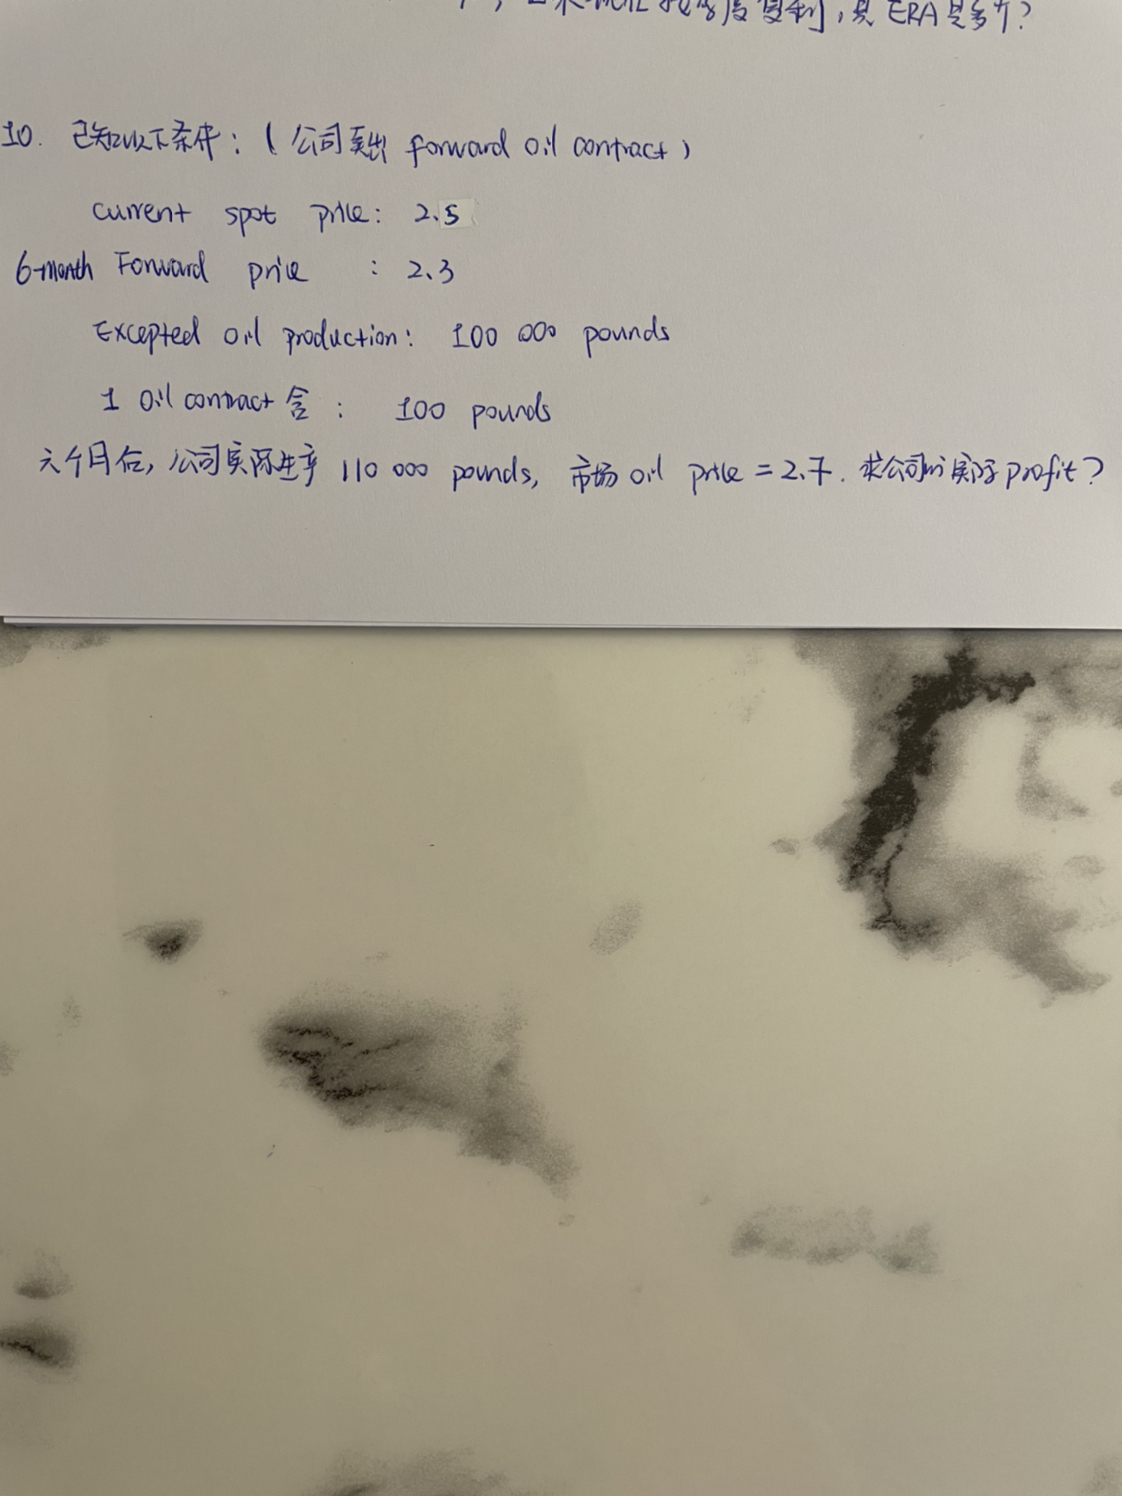 复利,其 ERA 是多少?
10. 已知以下条件:(公司卖出 forward oil contract)
current spot price: 2.5
6-month Forward price : 2.3
Excepted oil production: 100 000 pounds
1 oil contract 含: 100 pounds
六个月后,公司实际生产 110 000 pounds, 市场 oil price = 2.7. 求公司的实际 profit?